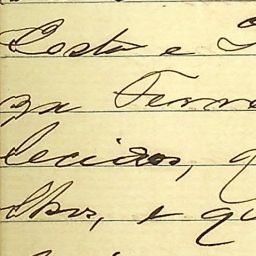 Costa e
za Ferre
lecidos, q
lhos, e qu